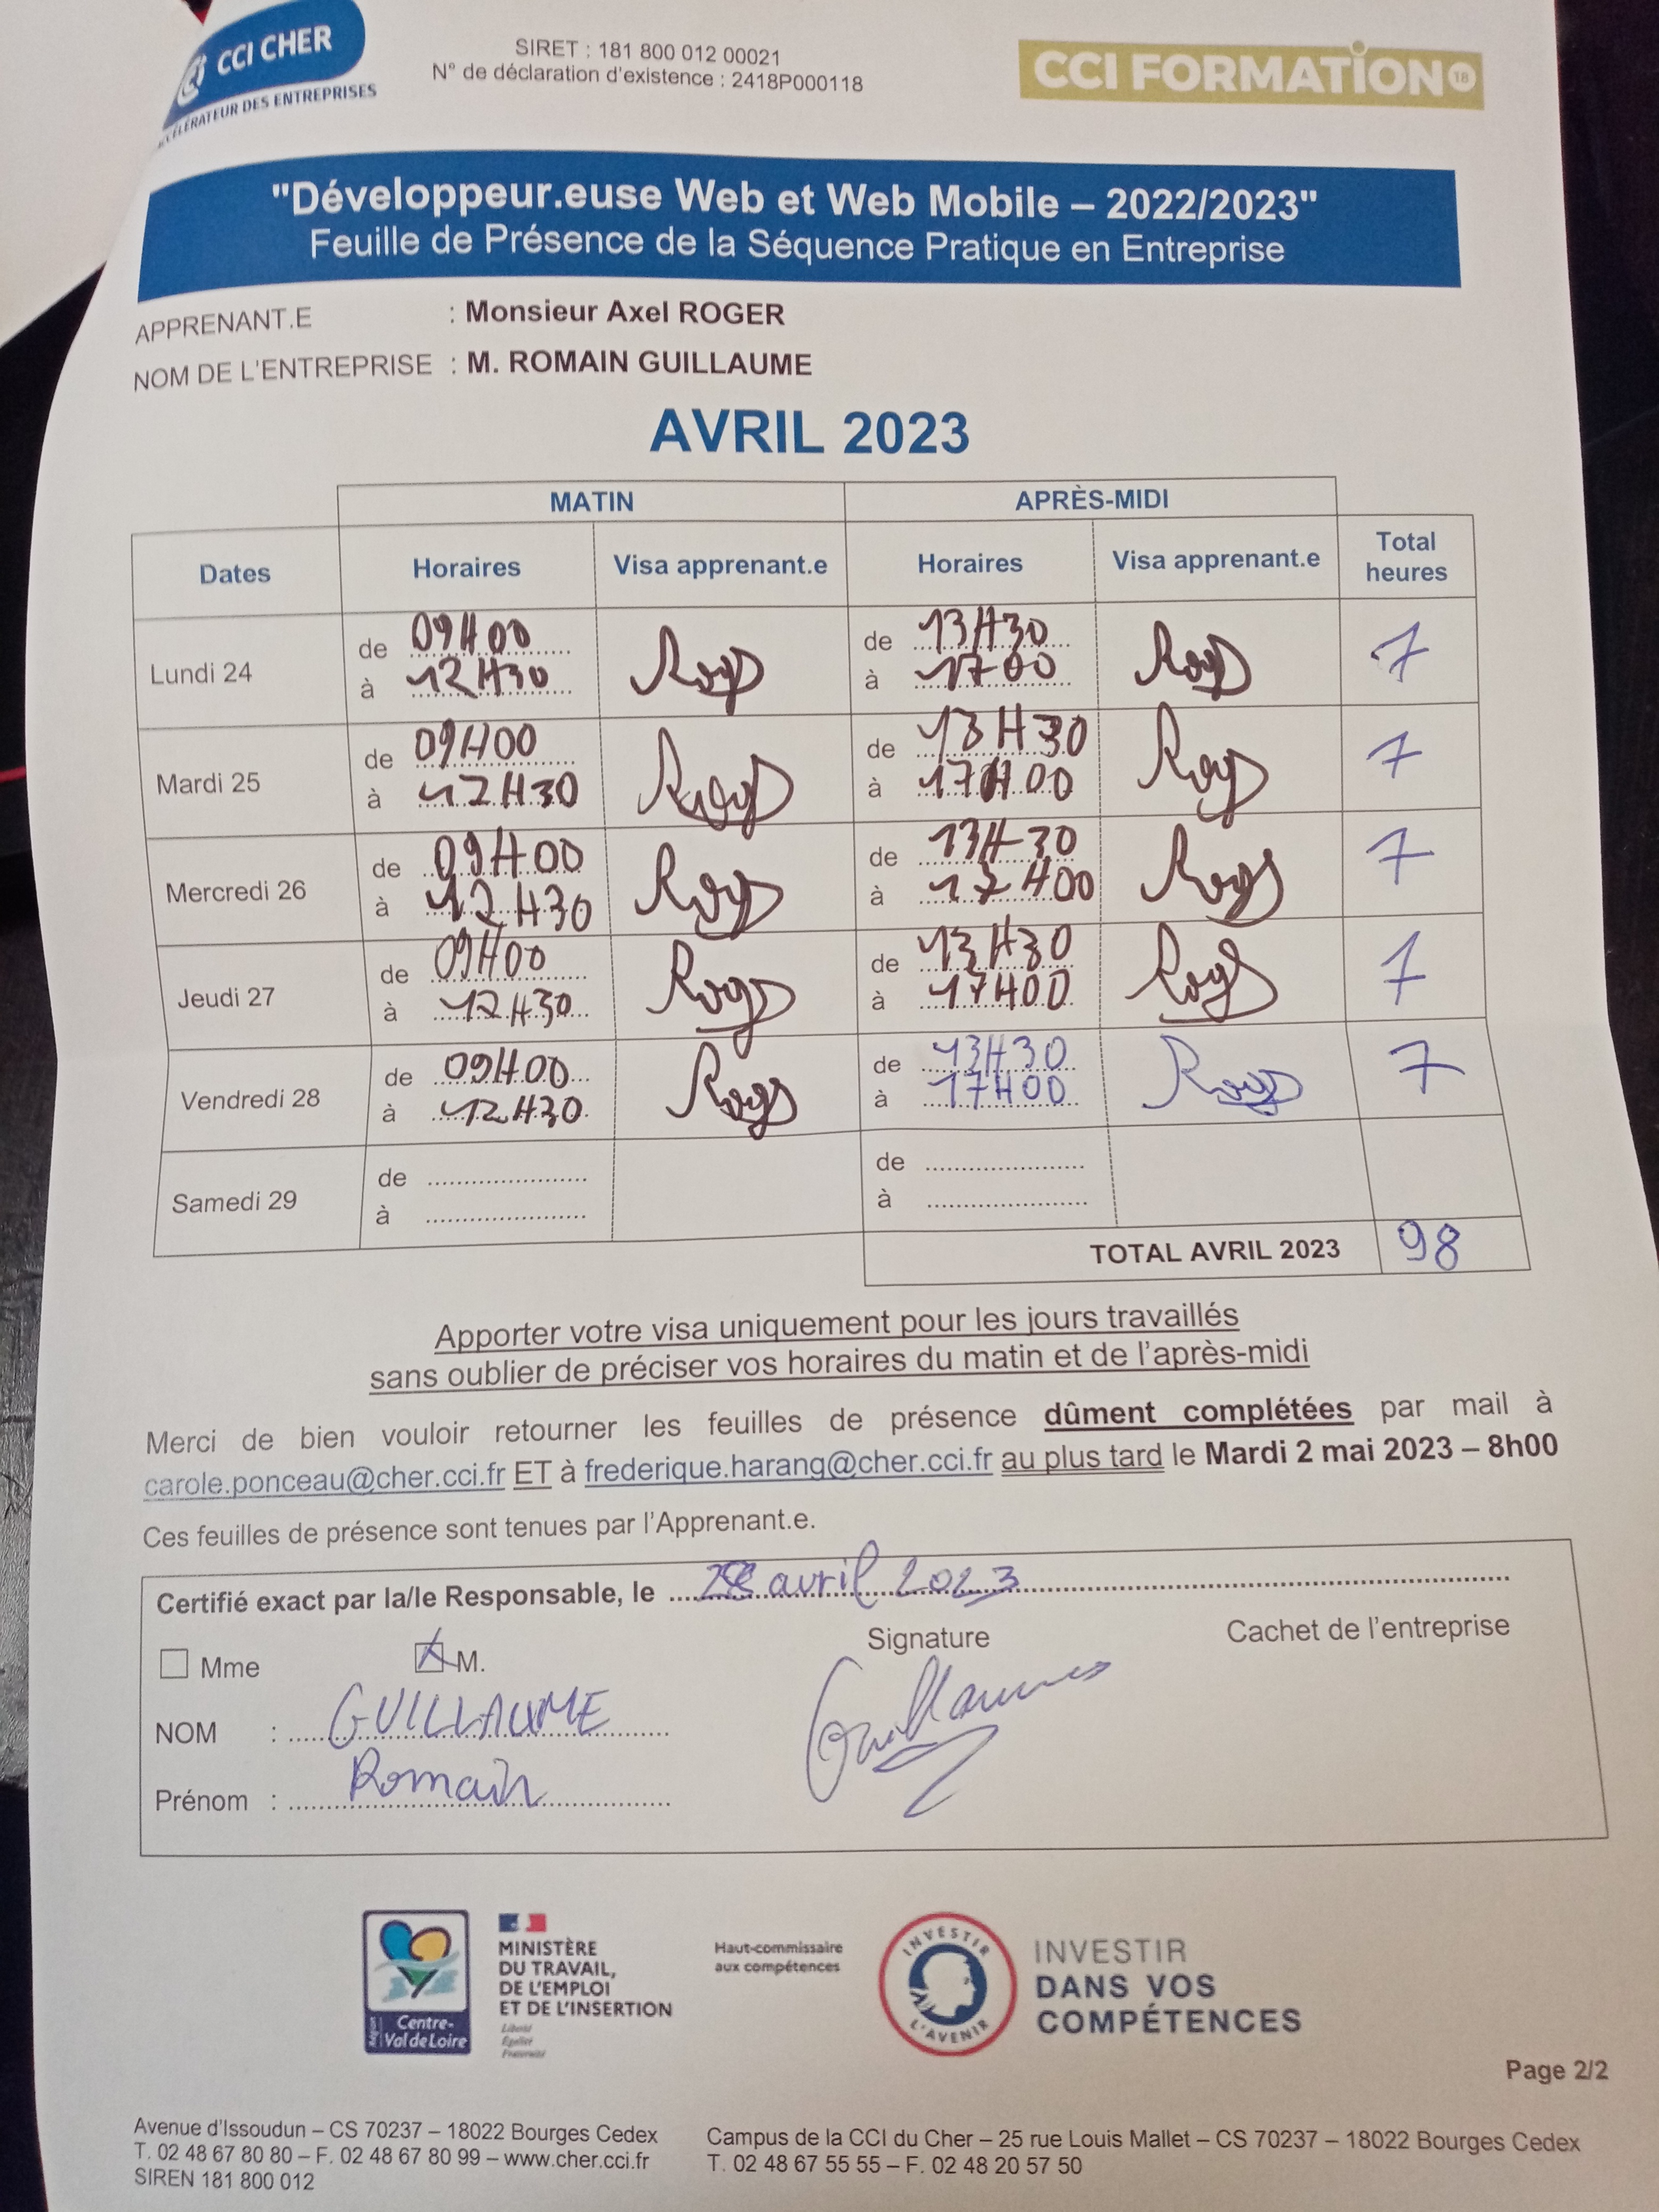 CCI CHER
ACCÉLÉRATEUR DES ENTREPRISES
SIRET : 181 800 012 00021
N° de déclaration d'existence : 2418P000118
CCI FORMATION 18
"Développeur.euse Web et Web Mobile – 2022/2023"
Feuille de Présence de la Séquence Pratique en Entreprise
APPRENANT.E : Monsieur Axel ROGER
NOM DE L'ENTREPRISE : M. ROMAIN GUILLAUME
AVRIL 2023
MATIN APRÈS-MIDI
Dates Horaires Visa apprenant.e Horaires Visa apprenant.e Total heures
Lundi 24 de 09H00 de 13H30 7
à 12H30 à 17 00
Mardi 25 de 09H00 de 13H30 7
à 12H30 à 17H00
Mercredi 26 de 09H00 de 13H30 7
à 12H30 à 17H00
Jeudi 27 de 09H00 de 13H30 7
à 12H30 à 17H00
Vendredi 28 de 09H00 de 13H30 7
à 12H30 à 17H00
Samedi 29 de de
à à
TOTAL AVRIL 2023 98
Apporter votre visa uniquement pour les jours travaillés
sans oublier de préciser vos horaires du matin et de l'après-midi
Merci de bien vouloir retourner les feuilles de présence dûment complétées par mail à
carole.ponceau@cher.cci.fr ET à frederique.harang@cher.cci.fr au plus tard le Mardi 2 mai 2023 – 8h00
Ces feuilles de présence sont tenues par l'Apprenant.e.
Certifié exact par la/le Responsable, le 28 avril 2023
Mme M. Signature Cachet de l'entreprise
NOM : GUILLAUME Guillaume
Prénom : Romain
Région Centre-Val de Loire
MINISTÈRE
DU TRAVAIL,
DE L'EMPLOI
ET DE L'INSERTION
Liberté
Égalité
Fraternité
Haut-commissaire
aux compétences
INVESTIR L'AVENIR
INVESTIR
DANS VOS
COMPÉTENCES
Page 2/2
Avenue d'Issoudun – CS 70237 – 18022 Bourges Cedex
T. 02 48 67 80 80 – F. 02 48 67 80 99 – www.cher.cci.fr
SIREN 181 800 012
Campus de la CCI du Cher – 25 rue Louis Mallet – CS 70237 – 18022 Bourges Cedex
T. 02 48 67 55 55 – F. 02 48 20 57 50